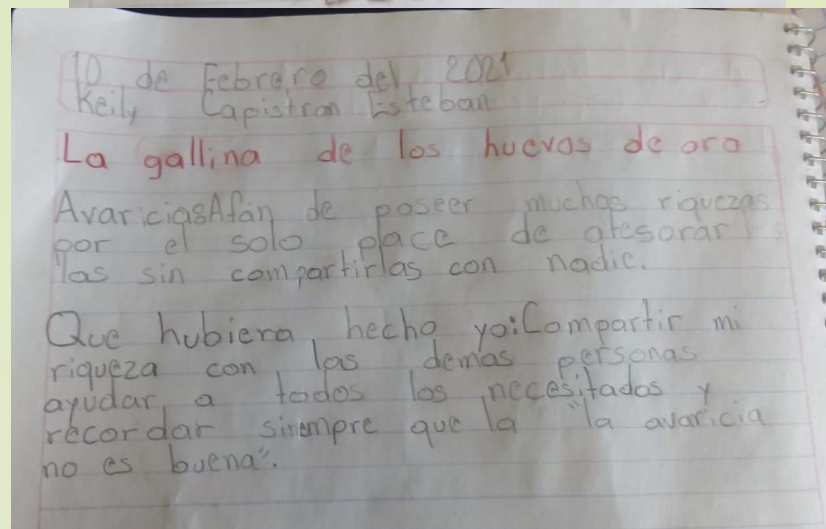 10 de Febrero del 2021
Keily Capistran Esteban
La gallina de los huevos de oro
Avaricia:Afán de poseer muchas riquezas
por el solo place de atesorar
las sin compartirlas con nadie.
Que hubiera hecho yo:Compartir mi
riqueza con las demas personas
ayudar a todos los necesitados y
recordar sinempre que la "la avaricia
no es buena".